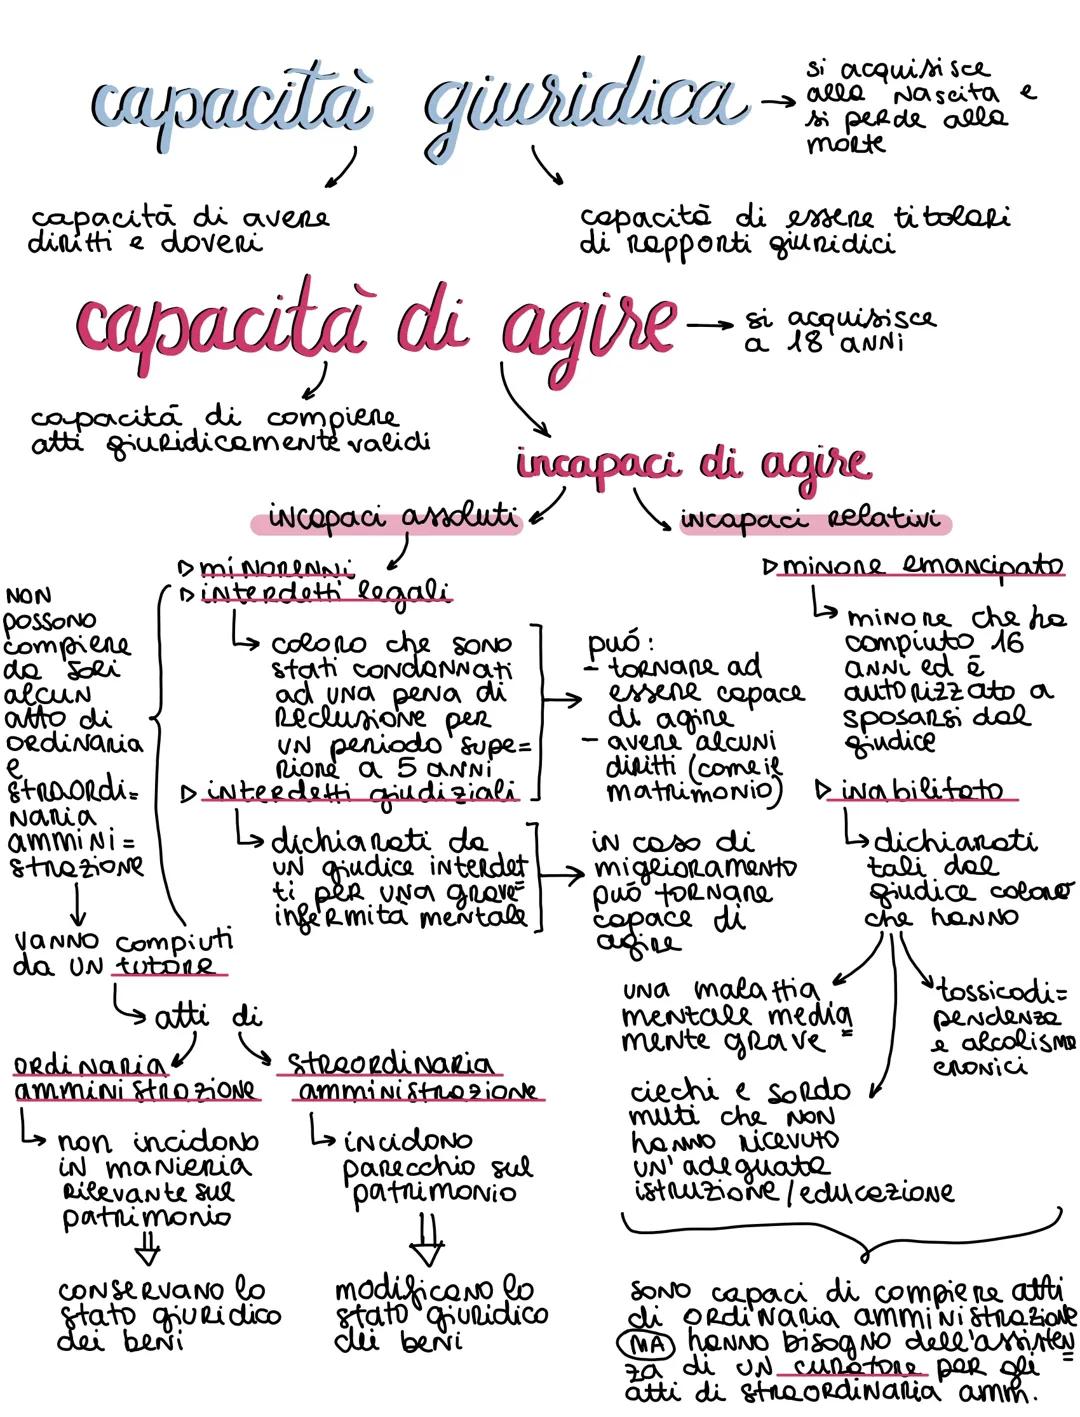 capacità giuridica
si acquisisce
alla nascita e
si perde alla
morte
capacità di avere
diritti e doveri
capacità di essere titolari
di rapporti giuridici
capacità di agire
si acquisisce
a 18 anni
capacità di compiere
atti giuridicamente validi
incapaci di agire
incapaci assoluti
incapaci relativi
minorenni
interdetti legali
coloro che sono
stati condannati
ad una pena di
reclusione per
un periodo supe=
riore a 5 anni
può:
- tornare ad
essere capace
di agire
- avere alcuni
diritti (come il
matrimonio)
interdetti giudiziali
dichiarati da
un giudice interdet=
ti per una grave
infermità mentale
in caso di
miglioramento
può tornare
capace di
agire
non
possono
compiere
da soli
alcun
atto di
ordinaria
e
straordi=
naria
ammini=
strazione
vanno compiuti
da un tutore
atti di
ordinaria
amministrazione
non incidono
in manieria
rilevante sul
patrimonio
conservano lo
stato giuridico
dei beni
straordinaria
amministrazione
incidono
parecchio sul
patrimonio
modificano lo
stato giuridico
dei beni
minore emancipato
minore che ha
compiuto 16
anni ed è
autorizzato a
sposarsi dal
giudice
inabilitato
dichiarati
tali dal
giudice coloro
che hanno
una malattia
mentale media=
mente grave
tossicodi=
pendenza
e alcolismo
cronici
ciechi e sordo
muti che non
hanno ricevuto
un'adeguata
istruzione/educazione
sono capaci di compiere atti
di ordinaria amministrazione
MA hanno bisogno dell'assisten=
za di un curatore per gli
atti di straordinaria amm.